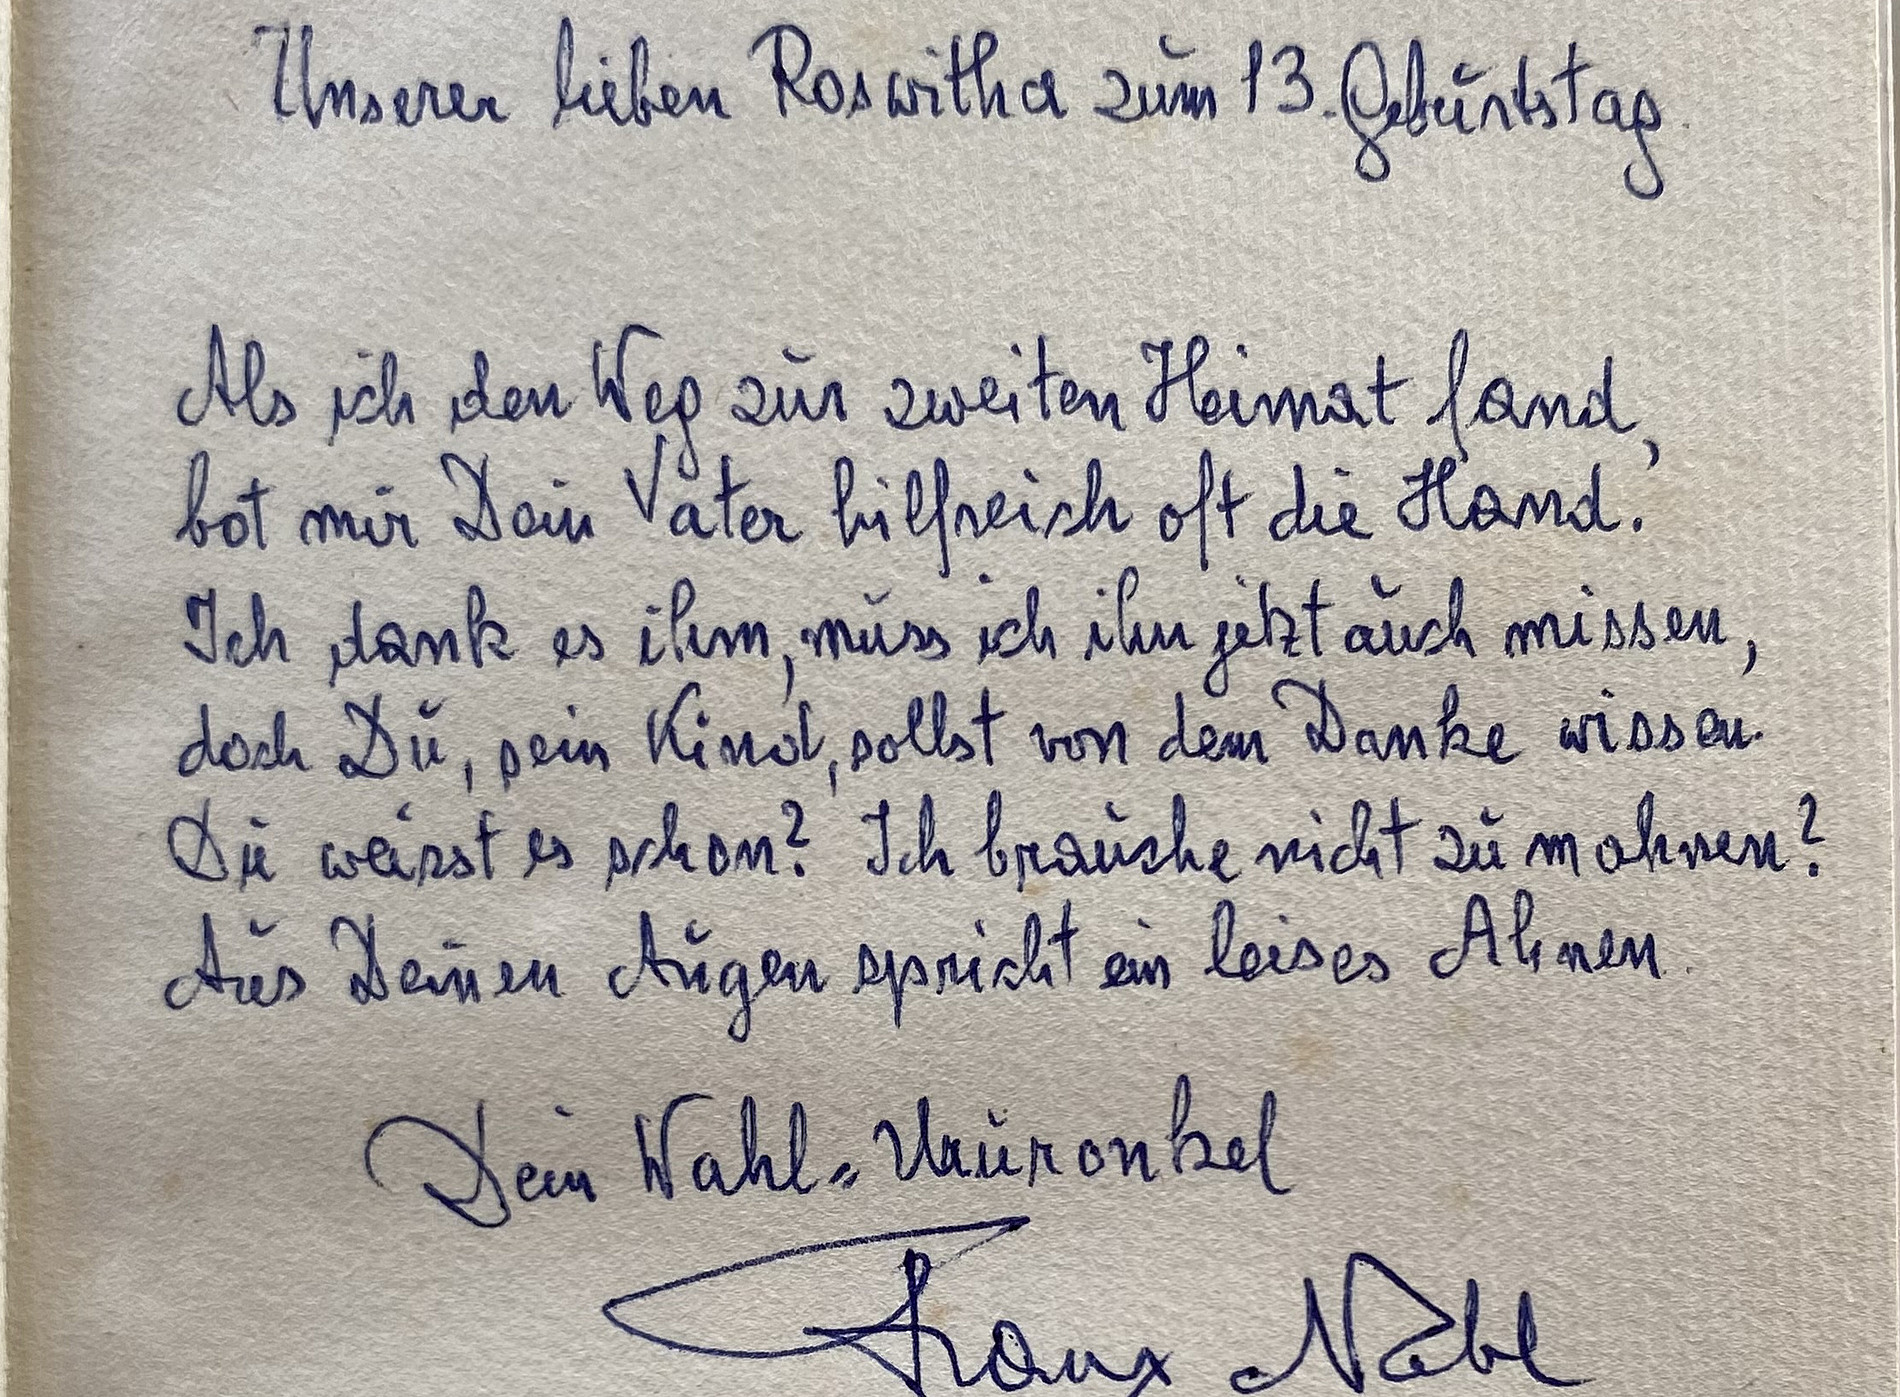 Unserer lieben Roswitha zum 13. Geburtstag.
Als ich den Weg zur zweiten Heimat fand,
bot mir Dein Vater hilfreich oft die Hand.
Ich dank es ihm, muss ich ihn jetzt auch missen,
doch Du, sein Kind, sollst von dem Danke wissen.
Du weisst es schon? Ich brauche nicht zu mahnen?
Aus Deinen Augen spricht ein leises Ahnen.
Dein Wahl-Ururonkel
Franz Nabl